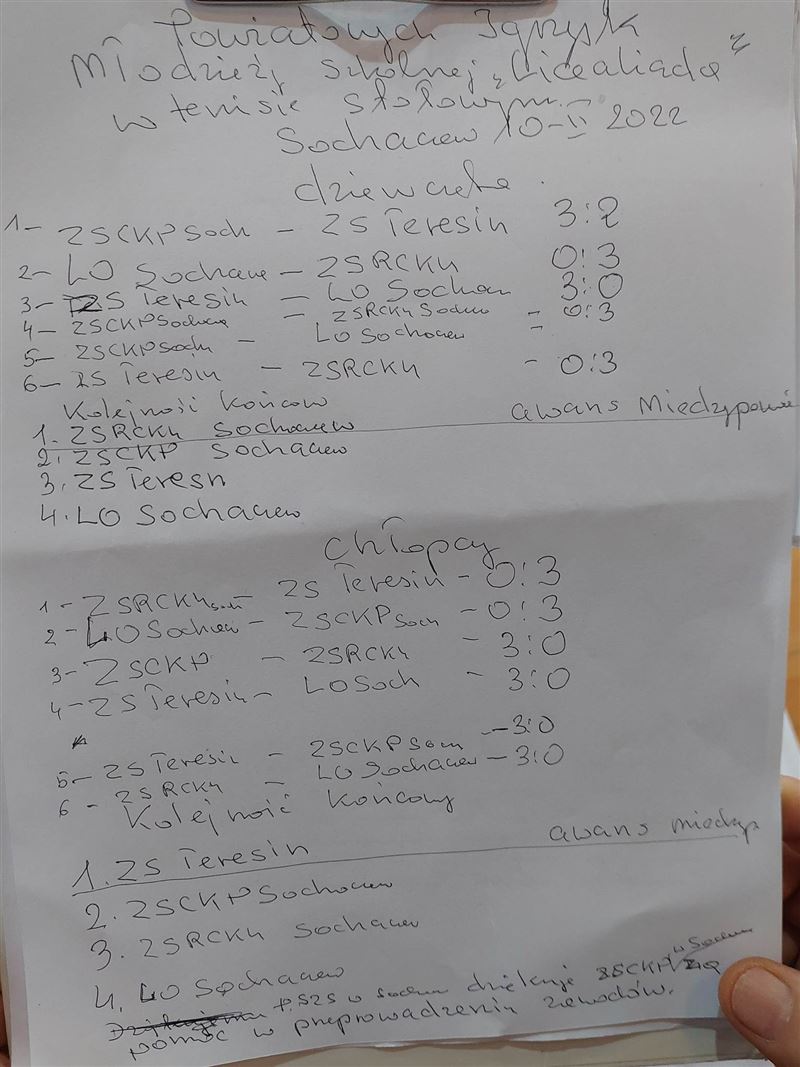 Powiatowych Igrzysk
Młodzieży Szkolnej „Licealiada”
w tenisie stołowym
Sochaczew 10-II 2022
dziewczęta
1- ZSCKP Soch - ZS Teresin 3:2
2- LO Sochacze - ZSRCKU 0:3
3- ZS Teresin = LO Sochaczew 3:0
4- ZSCKP Sochacz = ZSRCKU Sochacz - 0:3
5- ZSCKP Soch - LO Sochaczew -
6- ZS Teresin - ZSRCKU - 0:3
Kolejność końcow
1. ZSRCKU Sochaczew awans Miedzypowia
2. ZSCKP Sochaczew
3. ZS Teresn
4. LO Sochaczew
Chłopcy
1- ZSRCKU Soch - ZS Teresin - 0:3
2- LO Sochaczew - ZSCKP Soch - 0:3
3- ZSCKP - ZSRCKU - 3:0
4- ZS Teresin - LO Soch - 3:0
5- ZS Teresin - ZSCKP Soch - 3:0
6- ZSRCKU - LO Sochaczew - 3:0
Kolejność końcowy
1. ZS Teresin awans miedzyp
2. ZSCKP Sochaczew
3. ZSRCKU Sochaczew
4. LO Sochaczew
P.SZS w Sochacz dziękuje ZSCKP w Sochacz za
pomoc w przeprowadzeniu zawodów.